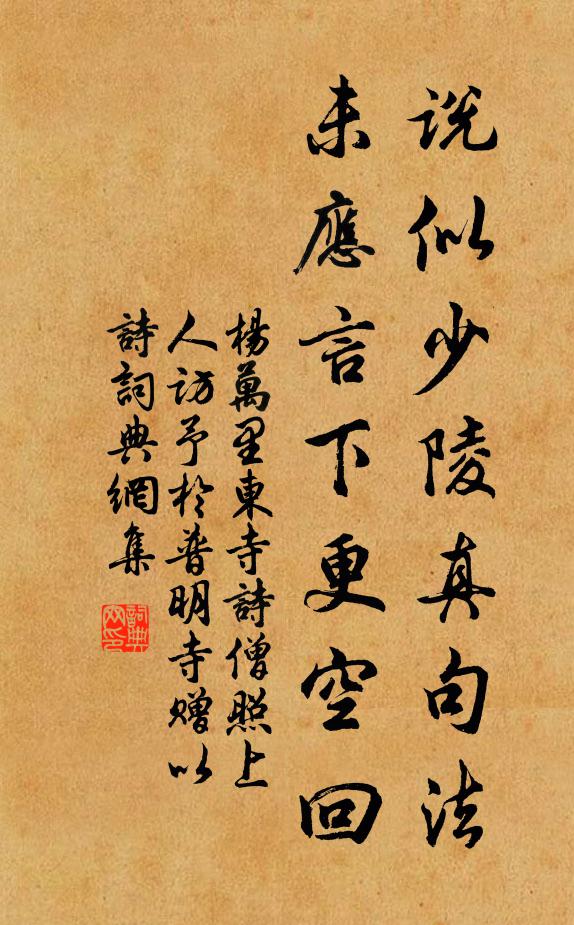 説似少陵真句法
未應言下更空回
楊萬里東寺詩僧照上
人訪予於普明寺贈以
詩詞典網集
詞典網印